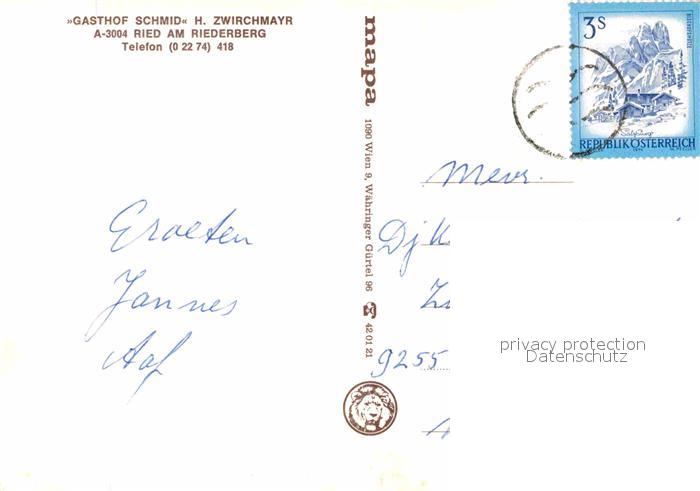 »GASTHOF SCHMID« H. ZWIRCHMAYR
A-3004 RIED AM RIEDERBERG
Telefon (0 22 74) 418
mapa
1090 Wien 9, Währinger Gürtel 96
42 01 21
3S
BISCHOFSMÜTZE
Salzburg
REPUBLIK ÖSTERREICH
Groeten
Jannes
Aaf
Mevr.
Dj K
9255
privacy protection
Datenschutz